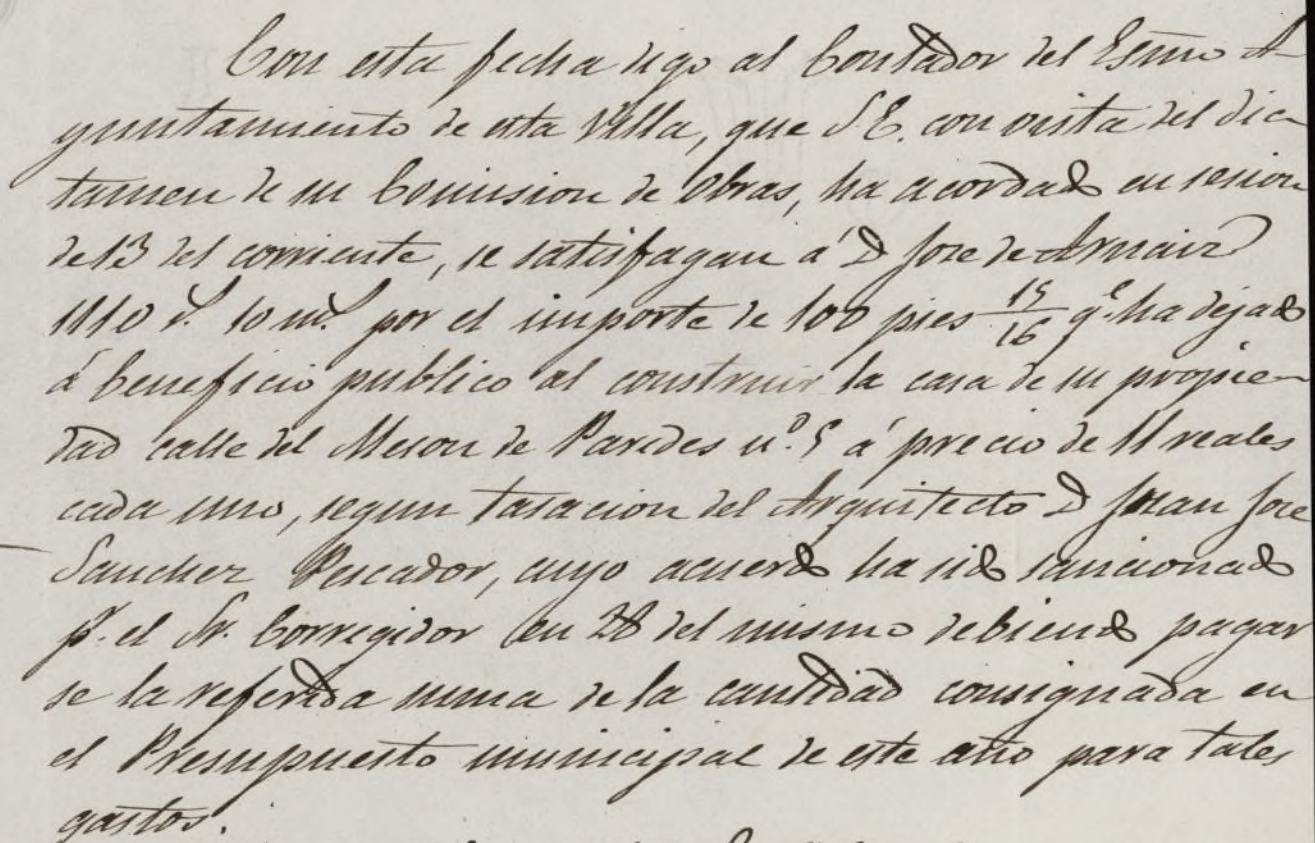 Con esta fecha digo al Contador del Esmo A-
yuntamiento de esta Villa, que S.E. con vista del dic-
tamen de su Comision de Obras, ha acordado en sesion
de 13 del corriente, se satisfagan á D Jose de Arnaiz
1110 r.s 10 m.s por el importe de 100 pies 15/16 q.e ha dejado
á beneficio publico al construir la casa de su propie-
dad calle del Meson de Paredes n.o 5 á precio de 11 reales
cada uno, segun tasacion del Arquitecto D Juan Jose
Sanchez Pescador, cuyo acuerdo ha sido sancionado
p.r el Sr. Corregidor en 28 del mismo debiendo pagar
se la referida suma de la cantidad consignada en
el Presupuesto municipal de este año para tales
gastos.